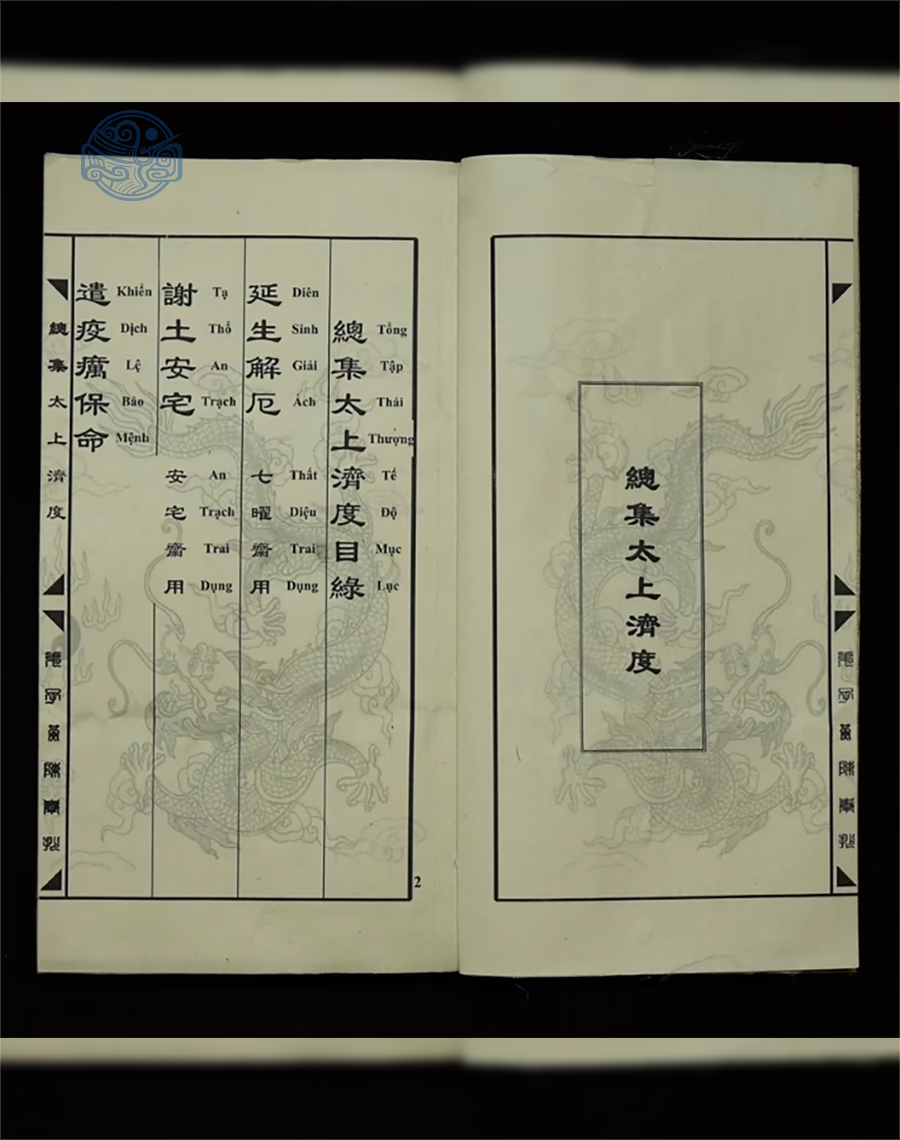 總集太上濟度
總集太上濟度目綠
Tổng Tập Thái Thượng Tế Độ Mục Lục
延生解厄 七曜齋用
Diên Sinh Giải Ách Thất Diệu Trai Dụng
謝土安宅 安宅齋用
Tạ Thổ An Trạch An Trạch Trai Dụng
遣疫癘保命
Khiển Dịch Lệ Bảo Mệnh
總集太上濟度
2